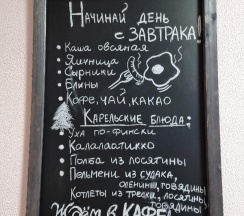 Начинай день
с ЗАВТРАКА
• Каша овсяная
• Яичница
• Сырники
• Блины
• Кофе, ЧАЙ, КАКАО
Карельские блюда:
• Уха по-фински
• Калалаатикко
• Полба из лосятины
• Пельмени из судака,
оленины, говядины
Котлеты из трески, лосятины,
говядины
Ждём в КАФЕ!